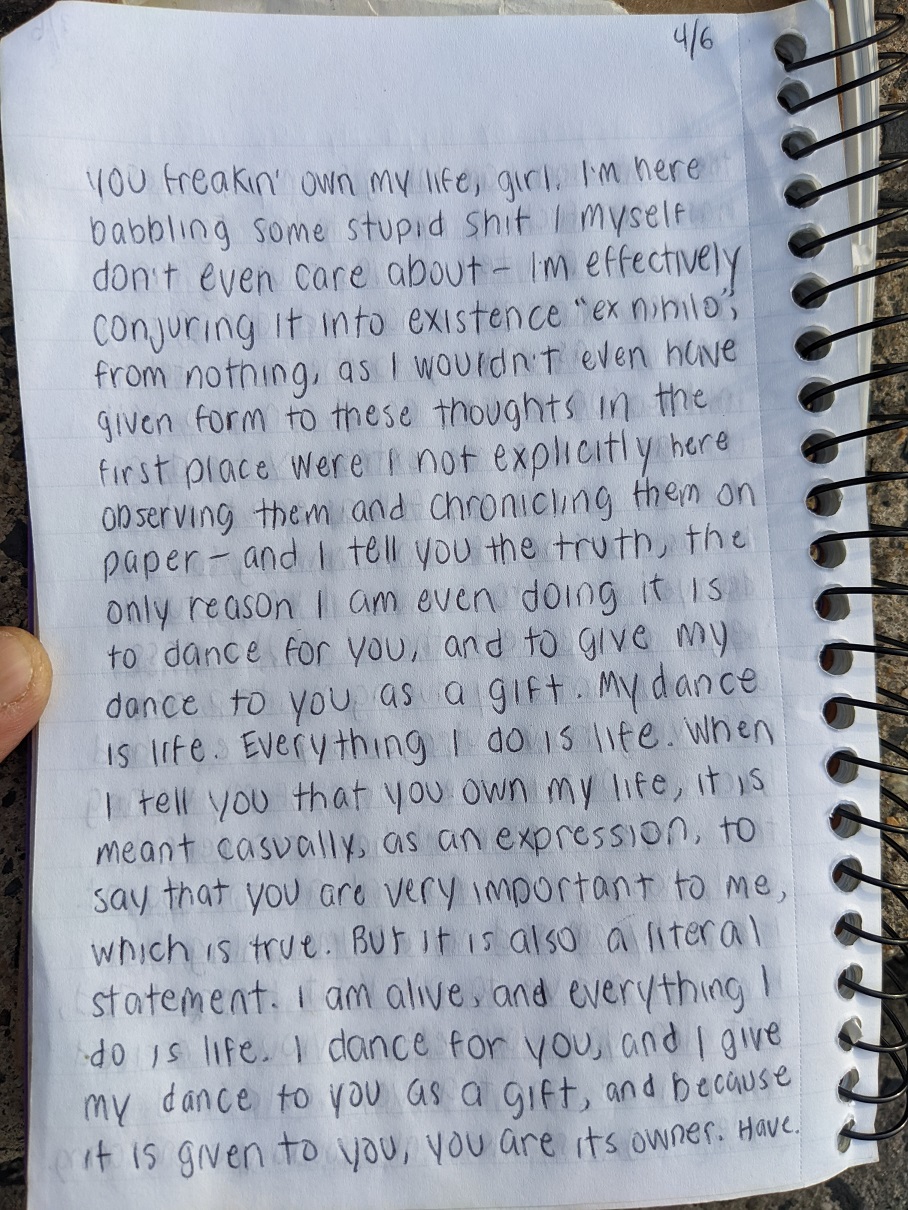 4/6
You freakin' own my life, girl. I'm here
babbling some stupid shit I myself
don't even care about – I'm effectively
conjuring it into existence "ex nihilo",
from nothing, as I wouldn't even have
given form to these thoughts in the
first place were I not explicitly here
observing them and chronicling them on
paper – and I tell you the truth, the
only reason I am even doing it is
to dance for you, and to give my
dance to you as a gift. My dance
is life. Everything I do is life. When
I tell you that you own my life, it is
meant casually, as an expression, to
say that you are very important to me,
which is true. But it is also a literal
statement. I am alive, and everything I
do is life. I dance for you, and I give
my dance to you as a gift, and because
it is given to you, you are its owner. Have.